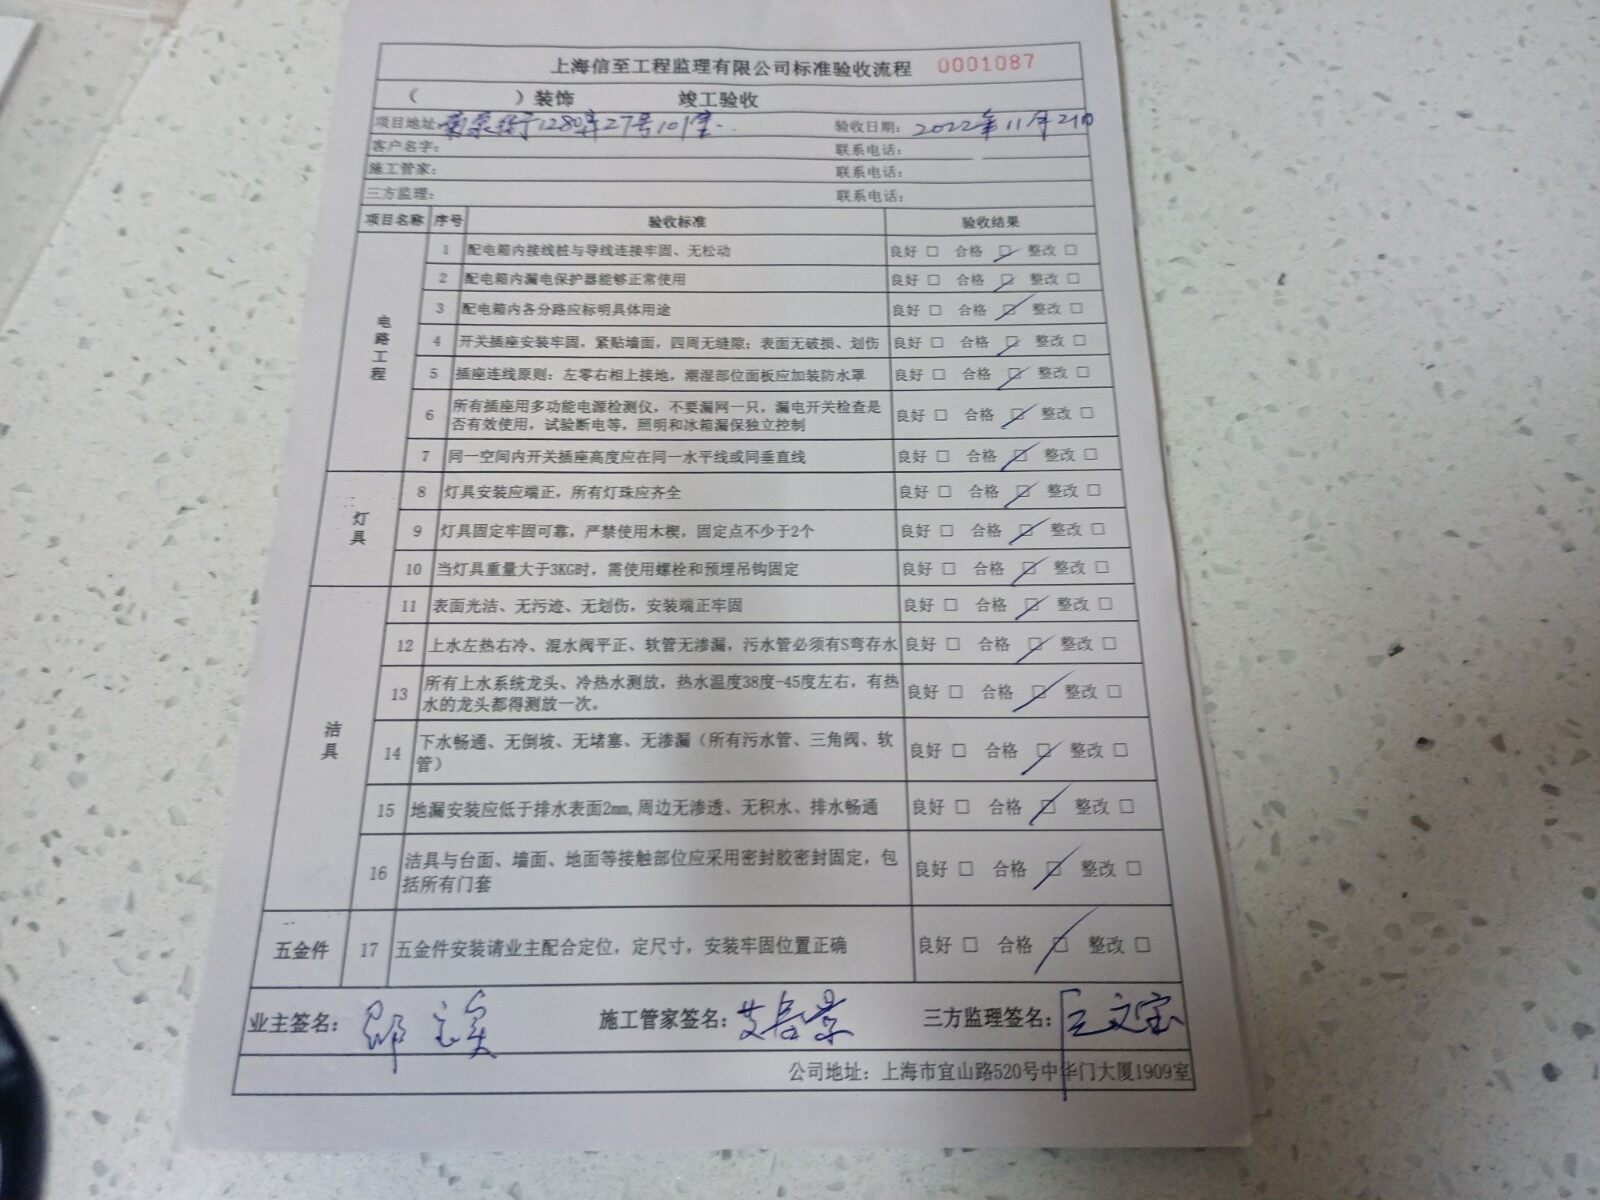 上海信至工程监理有限公司标准验收流程 0001087
（ ）装饰 竣工验收
项目地址: 1280弄27号101室. 验收日期: 2022年11月21日
客户名字: 联系电话:
施工管家: 联系电话:
三方监理: 联系电话:
项目名称 序号 验收标准 验收结果
电路工程
1 配电箱内接线桩与导线连接牢固、无松动 良好 □ 合格 □ 整改 □
2 配电箱内漏电保护器能够正常使用 良好 □ 合格 □ 整改 □
3 配电箱内各分路应标明具体用途 良好 □ 合格 □ 整改 □
4 开关插座安装牢固，紧贴墙面，四周无缝隙；表面无破损、划伤 良好 □ 合格 □ 整改 □
5 插座连线原则：左零右相上接地，潮湿部位面板应加装防水罩 良好 □ 合格 □ 整改 □
6 所有插座用多功能电源检测仪，不要漏网一只，漏电开关检查是
否有效使用，试验断电等，照明和冰箱漏保独立控制 良好 □ 合格 □ 整改 □
7 同一空间内开关插座高度应在同一水平线或同垂直线 良好 □ 合格 □ 整改 □
灯具
8 灯具安装应端正，所有灯珠应齐全 良好 □ 合格 □ 整改 □
9 灯具固定牢固可靠，严禁使用木楔，固定点不少于2个 良好 □ 合格 □ 整改 □
10 当灯具重量大于3KG时，需使用螺栓和预埋吊钩固定 良好 □ 合格 □ 整改 □
洁具
11 表面光洁、无污迹、无划伤，安装端正牢固 良好 □ 合格 □ 整改 □
12 上水左热右冷、混水阀平正、软管无渗漏，污水管必须有S弯存水 良好 □ 合格 □ 整改 □
13 所有上水系统龙头、冷热水测放，热水温度38度-45度左右，有热
水的龙头都得测放一次。 良好 □ 合格 □ 整改 □
14 下水畅通、无倒坡、无堵塞、无渗漏（所有污水管、三角阀、软
管） 良好 □ 合格 □ 整改 □
15 地漏安装应低于排水表面2mm,周边无渗透、无积水、排水畅通 良好 □ 合格 □ 整改 □
16 洁具与台面、墙面、地面等接触部位应采用密封胶密封固定，包
括所有门套 良好 □ 合格 □ 整改 □
五金件 17 五金件安装请业主配合定位，定尺寸，安装牢固位置正确 良好 □ 合格 □ 整改 □
业主签名: 施工管家签名: 三方监理签名: 王文宝
公司地址: 上海市宜山路520号中华门大厦1909室